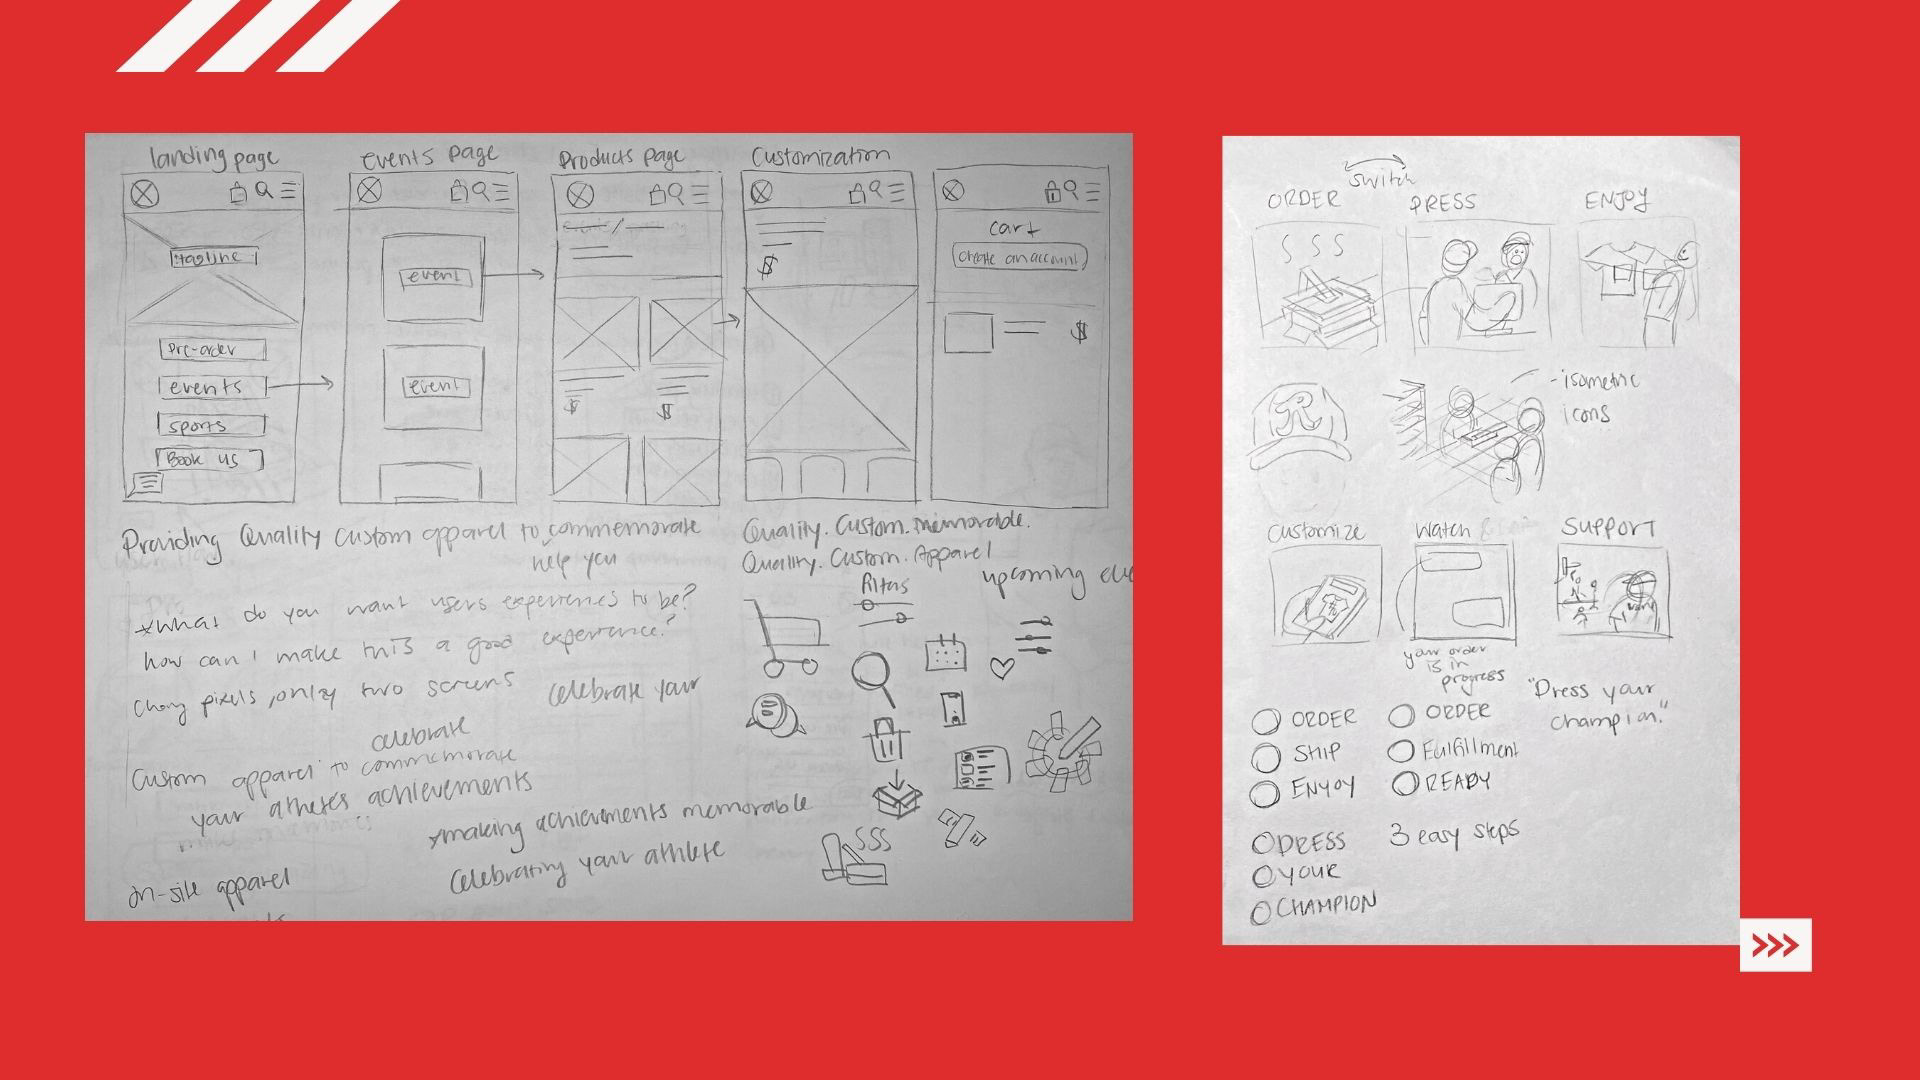 landing page
events page
Products page
Customization
tagline
Pre-order
events
sports
Book us
event
event
$
$
$
cart
create an account
$
Providing Quality custom apparel to commemorate
help you
Quality. Custom. memorable.
Quality. Custom. Apparel
*what do you want users experiences to be?
how can I make this a good experience?
pixels, only two screens
celebrate your
celebrate
Custom apparel to commemorate
your athletes achievements
*making achievements memorable
Celebrating your athlete
on-site apparel
filters
upcoming
switch
ORDER
PRESS
ENJOY
SSS
R
- isometric
icons
customize
Watch
SUPPORT
your order
is in
progress
"Dress your
champion."
ORDER
SHIP
ENJOY
ORDER
Fulfillment
READY
DRESS
YOUR
CHAMPION
3 easy steps
SSS